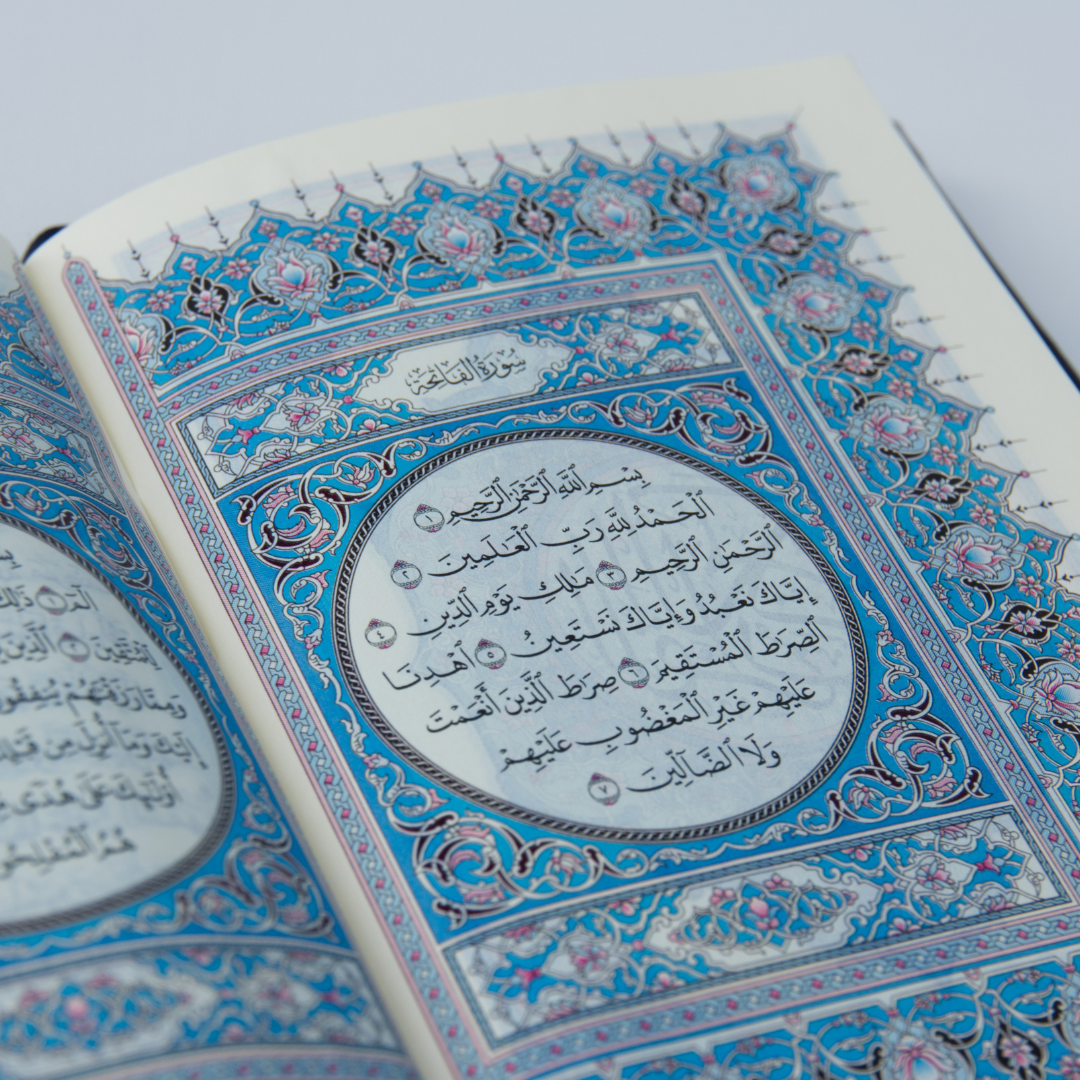 سُورَةُ الفَاتِحَةِ
بِسْمِ ٱللَّهِ ٱلرَّحْمَٰنِ ٱلرَّحِيمِ ١
ٱلْحَمْدُ لِلَّهِ رَبِّ ٱلْعَٰلَمِينَ ٢
ٱلرَّحْمَٰنِ ٱلرَّحِيمِ ٣ مَٰلِكِ يَوْمِ ٱلدِّينِ ٤
إِيَّاكَ نَعْبُدُ وَإِيَّاكَ نَسْتَعِينُ ٥ ٱهْدِنَا
ٱلصِّرَٰطَ ٱلْمُسْتَقِيمَ ٦ صِرَٰطَ ٱلَّذِينَ أَنْعَمْتَ
عَلَيْهِمْ غَيْرِ ٱلْمَغْضُوبِ عَلَيْهِمْ
وَلَا ٱلضَّآلِّينَ ٧
الٓمٓ ١ ذَٰلِكَ
ٱلَّذِينَ
وَمِمَّا رَزَقْنَٰهُمْ يُنفِقُونَ
إِلَيْكَ وَمَآ أُنزِلَ مِن قَبْلِكَ
أُو۟لَٰٓئِكَ عَلَىٰ هُدًى
هُمُ ٱلْمُفْلِحُونَ